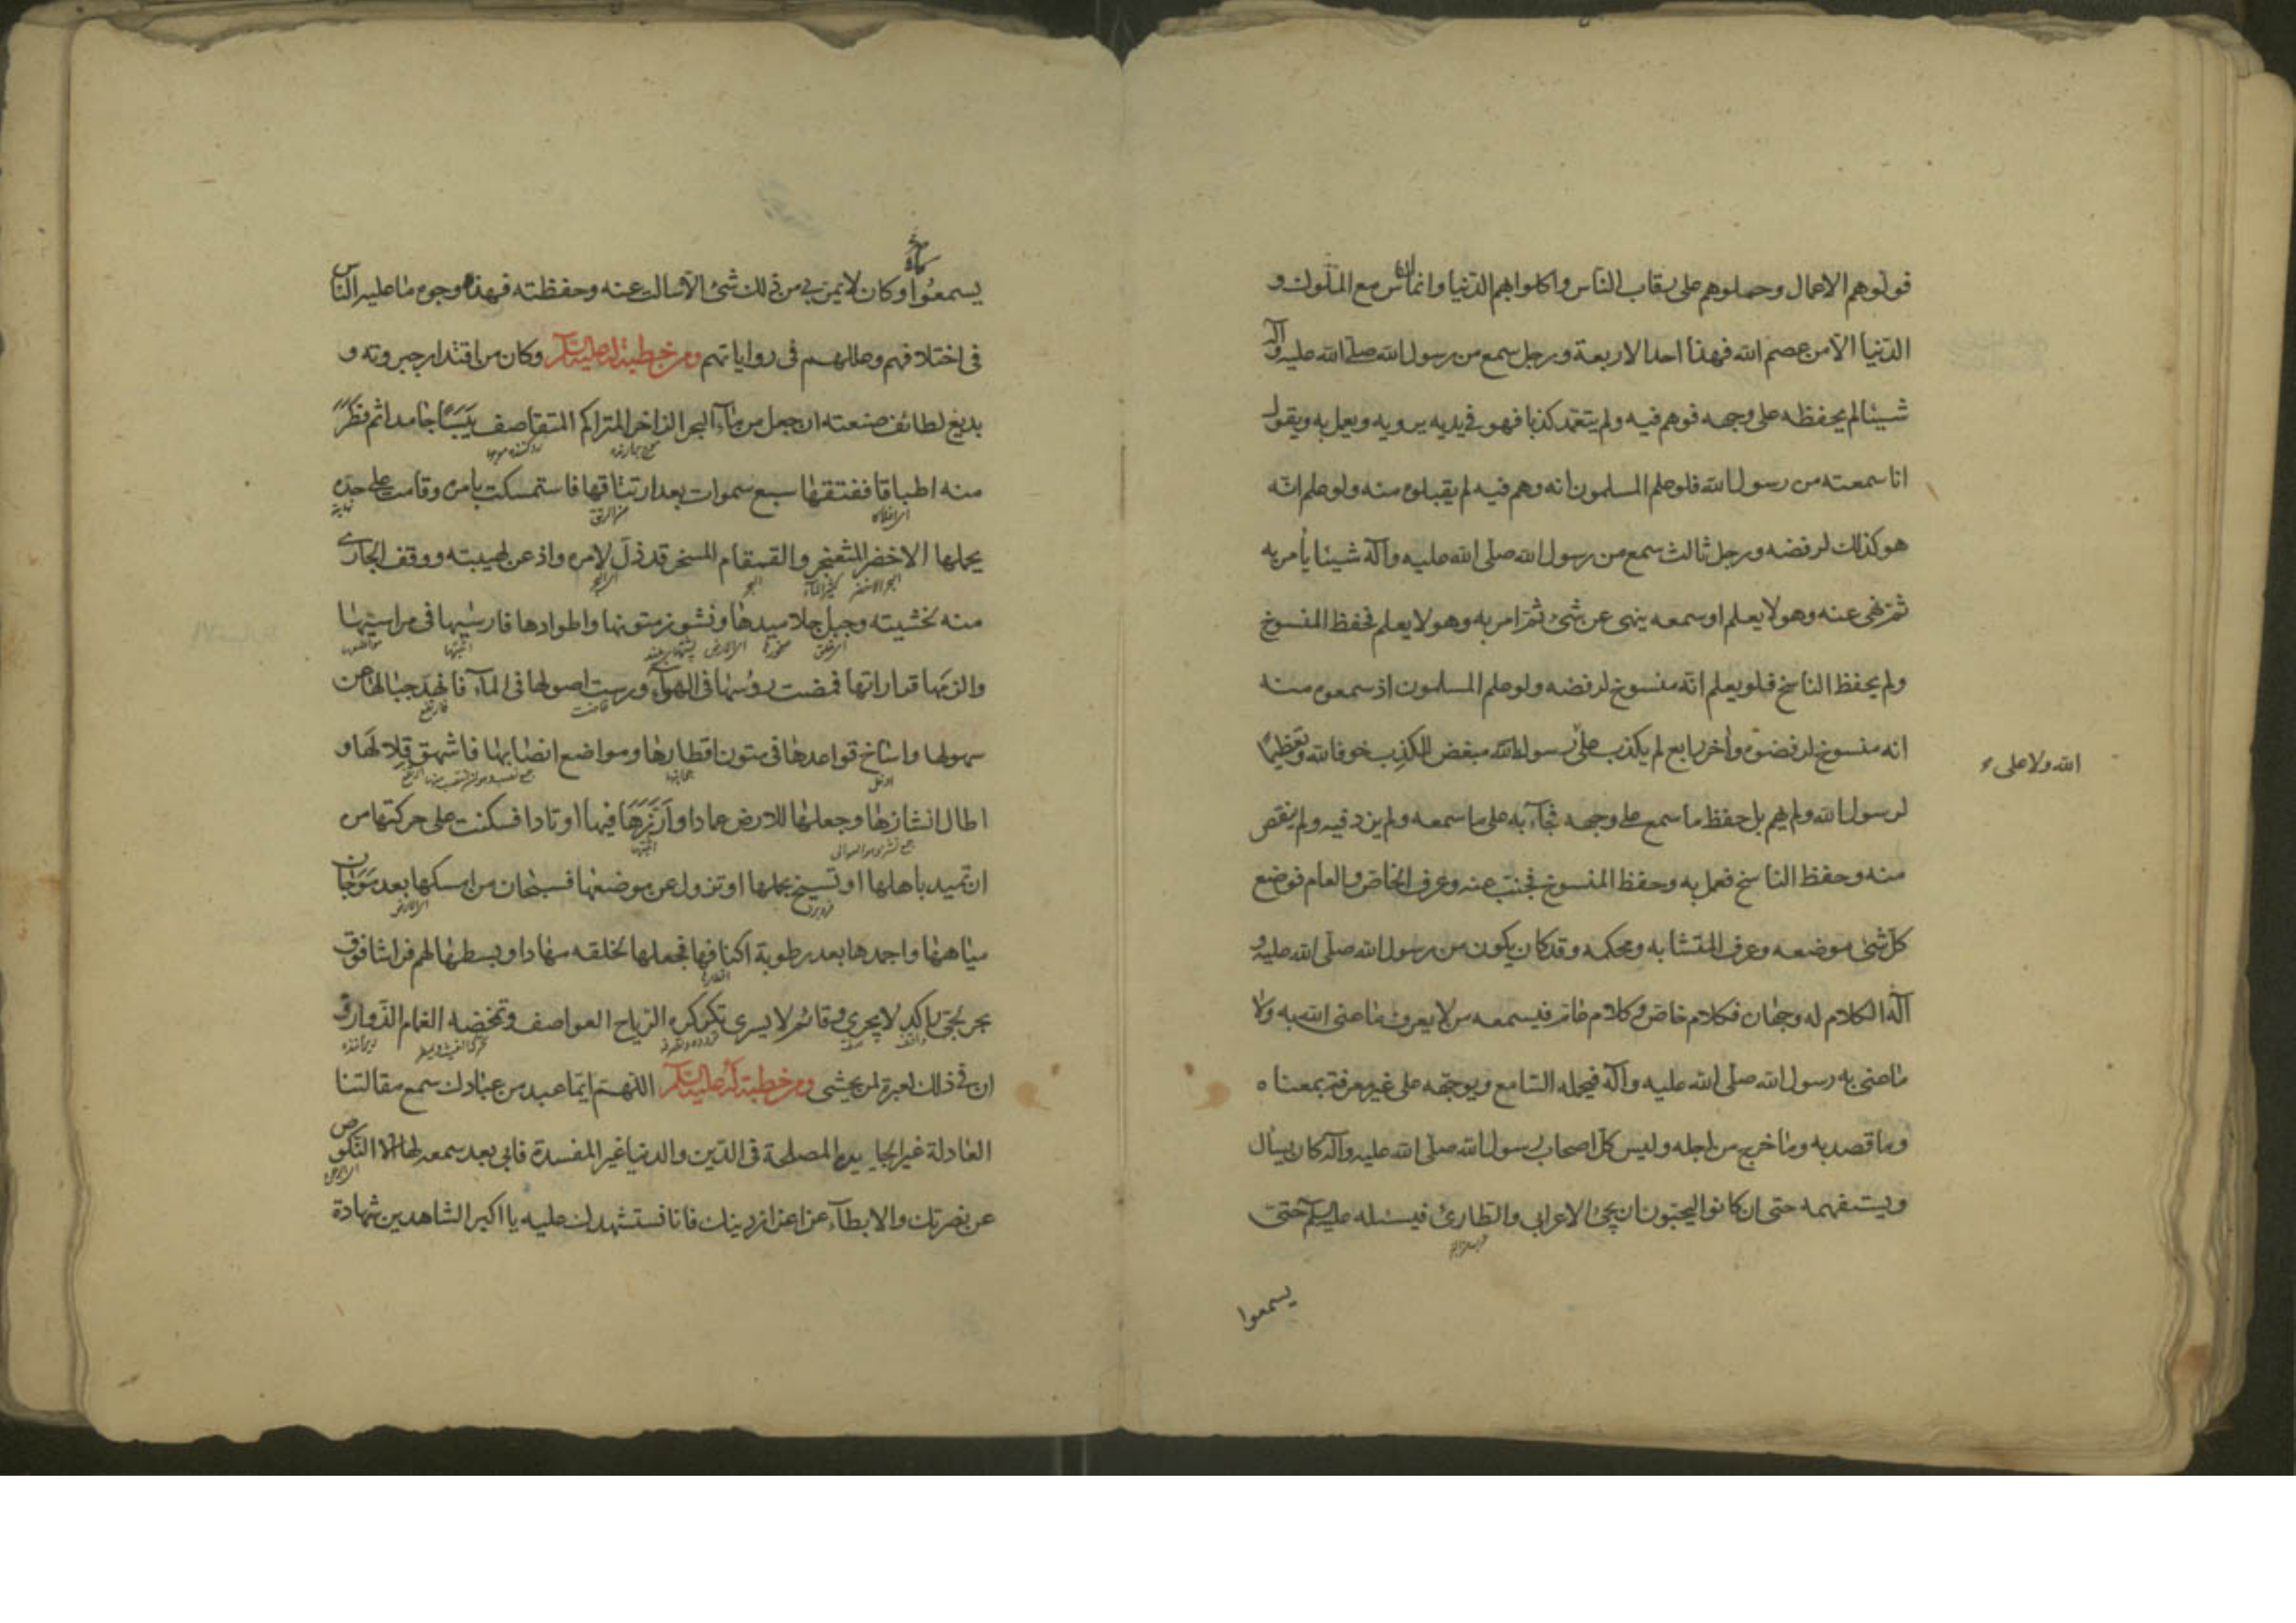 فولوهم الاعمال وحملوهم على رقاب الناس واكلوا بهم الدنيا وانما الناس مع الملوك و
الدنيا الا من عصم الله فهذا احد الاربعة ورجل سمع من رسول الله صلى الله عليه وآله
شيئا لم يحفظه على وجهه فوهم فيه ولم يتعمد كذبا فهو في يديه يرويه ويعمل به ويقول
انا سمعته من رسول الله فلو علم المسلمون انه وهم فيه لم يقبلوه منه ولو علم انه
هو كذلك لرفضه ورجل ثالث سمع من رسول الله صلى الله عليه وآله شيئا يأمر به
ثم نهى عنه وهو لا يعلم او سمعه ينهى عن شئ ثم امر به وهو لا يعلم فحفظ المنسوخ
ولم يحفظ الناسخ فلو يعلم انه منسوخ لرفضه ولو علم المسلمون اذ سمعوه منه
انه منسوخ لرفضوه وآخر رابع لم يكذب على رسول الله مبغض للكذب خوفا لله وتعظيما
الله ولا على
لرسول الله ولم يهم بل حفظ ما سمع على وجهه فجآء به على ما سمعه ولم يزد فيه ولم ينقص
منه وحفظ الناسخ فعمل به وحفظ المنسوخ فجنب عنه وعرف الخاص والعام فوضع
كل شئ موضعه وعرف المتشابه ومحكمه وقد كان يكون من رسول الله صلى الله عليه و
آله الكلام له وجهان فكلام خاص وكلام عام فيسمعه من لا يعرف ما عنى الله به ولا
ما عنى به رسول الله صلى الله عليه وآله فيحمله السامع ويوجهه على غير معرفة بمعناه
وما قصد به وما خرج من اجله وليس كل اصحاب رسول الله صلى الله عليه وآله كان يسأل
ويستفهمه حتى ان كانوا ليحبون ان يجئ الاعرابي والطارئ فيسئله عليه السلم حتى
يسمعوا
يسمعوا وكان لا يمر بي من ذلك شئ الا سالت عنه وحفظته فهذه وجوه ما عليه الناس
في اختلافهم وعللهم في رواياتهم ومن خطبة له عليه السلم وكان من اقتدار جبروته و
بديع لطائف صنعته ان جعل من مآء البحر الزاخر المتراكم المتقاصف يبسا جامدا ثم فطر
منه اطباقا ففتقها سبع سموات بعد ارتتاقها فاستمسكت بامره وقامت على حده
يحملها الاخضر المثعنجر والقمقام المسخر قد ذل لامره واذعن لهيبته ووقف الجاري
منه لخشيته وجبل جلاميدها ونشوز متونها واطوادها فارسيها في مراسيها
والزمها قراراتها فمضت رؤسها في الهوآء ورست اصولها في المآء فانهد جبالها عن
سهولها واساخ قواعدها في متون اقطارها ومواضع انصابها فاشهق قلالها و
اطال انشازها وجعلها للارض عمادا وارزها فيها اوتادا فسكنت على حركتها من
ان تميد باهلها او تسيخ بحملها او تزول عن موضعها فسبحان من امسكها بعد موجان
مياهها واجمدها بعد رطوبة اكنافها فجعلها لخلقه مهادا وبسطها لهم فراشا فوق
بحر لجي راكد لا يجري وقائم لا يسري تكركره الرياح العواصف وتمخضه الغمام الذوارف
ان في ذلك لعبرة لمن يخشى ومن خطبة له عليه السلم اللهم ايما عبد من عبادك سمع مقالتنا
العادلة غير الجايرة والمصلحة في الدين والدنيا غير المفسدة فابى بعد سمعه لها الا النكوص
عن نصرتك والابطآء عن اعزاز دينك فانا نستشهدك عليه يا اكبر الشاهدين شهادة